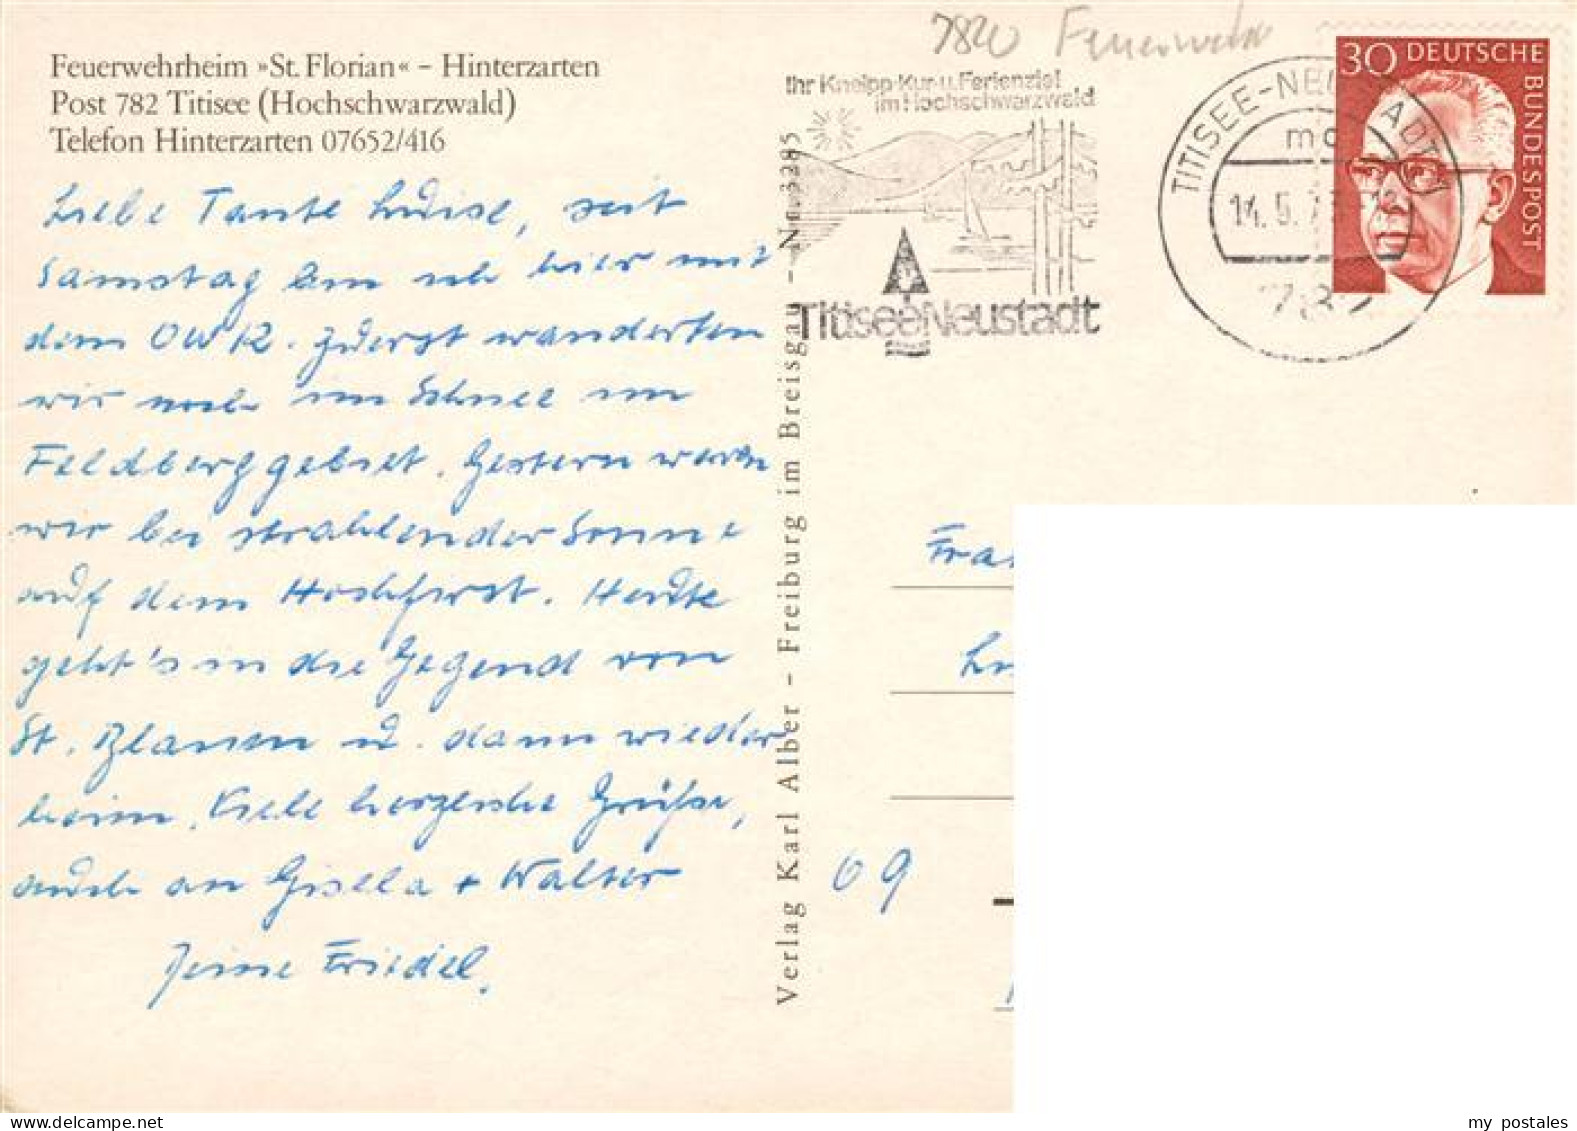 7820 Feuerweh
Feuerwehrheim »St. Florian« – Hinterzarten
Post 782 Titisee (Hochschwarzwald)
Telefon Hinterzarten 07652/416
Liebe Tante Luise, seit
Samstag bin ich hier mit
dem OWK. Zuerst wanderten
wir noch im Schnee im
Feldberggebiet. Gestern waren
wir bei strahlender Sonne
auf dem Hochfirst. Heute
geht's in die Gegend von
St. Blasien u. dann wieder
heim. Viele herzliche Grüße,
auch an Gisela + Walter
Deine Friedel.
Verlag Karl Alber – Freiburg im Breisgau – Nr. 3285
Ihr Kneipp-Kur-u. Ferienziel
im Hochschwarzwald
Titisee-Neustadt
TITISEE-NEUSTADT 1
14.5.73
782
30 DEUTSCHE
BUNDESPOST
09
my postales
delcampe.net